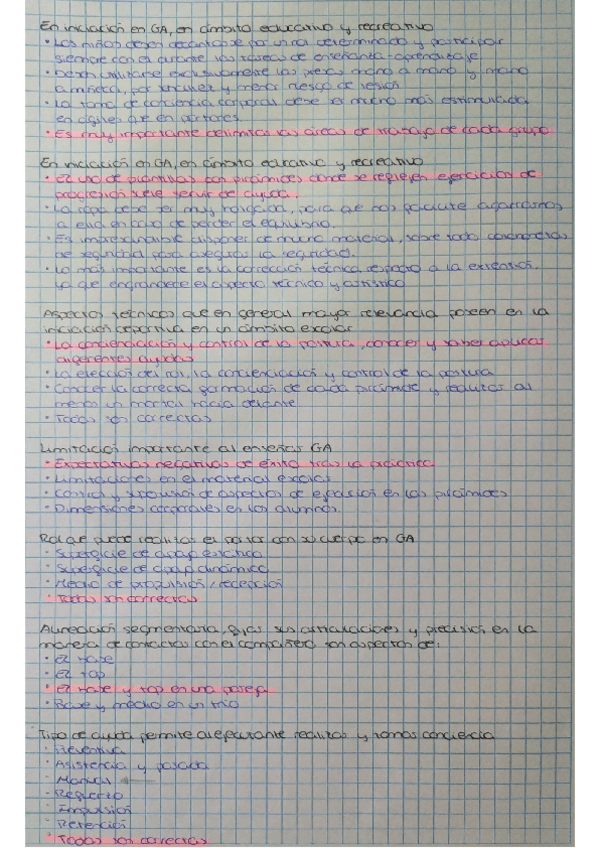 En iniciación en GA, en ámbito educativo y recreativo
• Los niños deben decantarse por un rol determinado y participar
siempre con él durante las tareas de enseñanza-aprendizaje
• Deben utilizarse exclusivamente las presas mano a mano y mano
a muñeca, por sencillez y menor riesgo de lesión
• La toma de conciencia corporal debe ser mucho más estimulada
en ágiles que en portores.
• Es muy importante delimitar las áreas de trabajo de cada grupo
En iniciación en GA, en ámbito educativo y recreativo
• El uso de plantillas con pirámides donde se reflejen ejercicios de
progresión suele servir de ayuda.
• La ropa debe ser muy holgada, para que nos podamos agarrarnos
a ella en caso de perder el equilibrio.
• Es imprescindible disponer de mucho material, sobre todo colchonetas
de seguridad para asegurar la seguridad.
• Lo más importante es la corrección técnica, respecto a la extensión,
ya que engrandece el aspecto técnico y artístico
Aspectos técnicos que en general mayor relevancia poseen en la
iniciación deportiva en un ámbito escolar
• La concienciación y control de la postura, conocer y saber aplicar
diferentes ayudas
• La elección del rol, la concienciación y control de la postura
• Conocer la correcta formación de cada pirámide y realizar al
menos un mortal hacia delante
• Todas son correctas
Limitación importante al enseñar GA
• Expectativas negativas de éxito tras la práctica
• Limitaciones en el material escolar
• Control y de aspectos de ejecución en las pirámides
• Dimensiones corporales en los alumnos.
Rol que puede realizar el portor con su cuerpo en GA
• Superficie de apoyo estático
• Superficie de apoyo dinámico
• Medio de propulsión / recepción
• Todas son correctas
Alineación segmentaria, fijar sus articulaciones y precisión en la
manera de contactar con el compañero son aspectos de:
• El base
• El top
• El base y top en una pareja
• Base y medio en un trío
Tipo de ayuda permite al ejecutante realizar y tomar conciencia
• Preventiva
• Asistencia y pasada
• Manual
• Refuerzo
• Impulsión
• Retención
• Todas son correctas